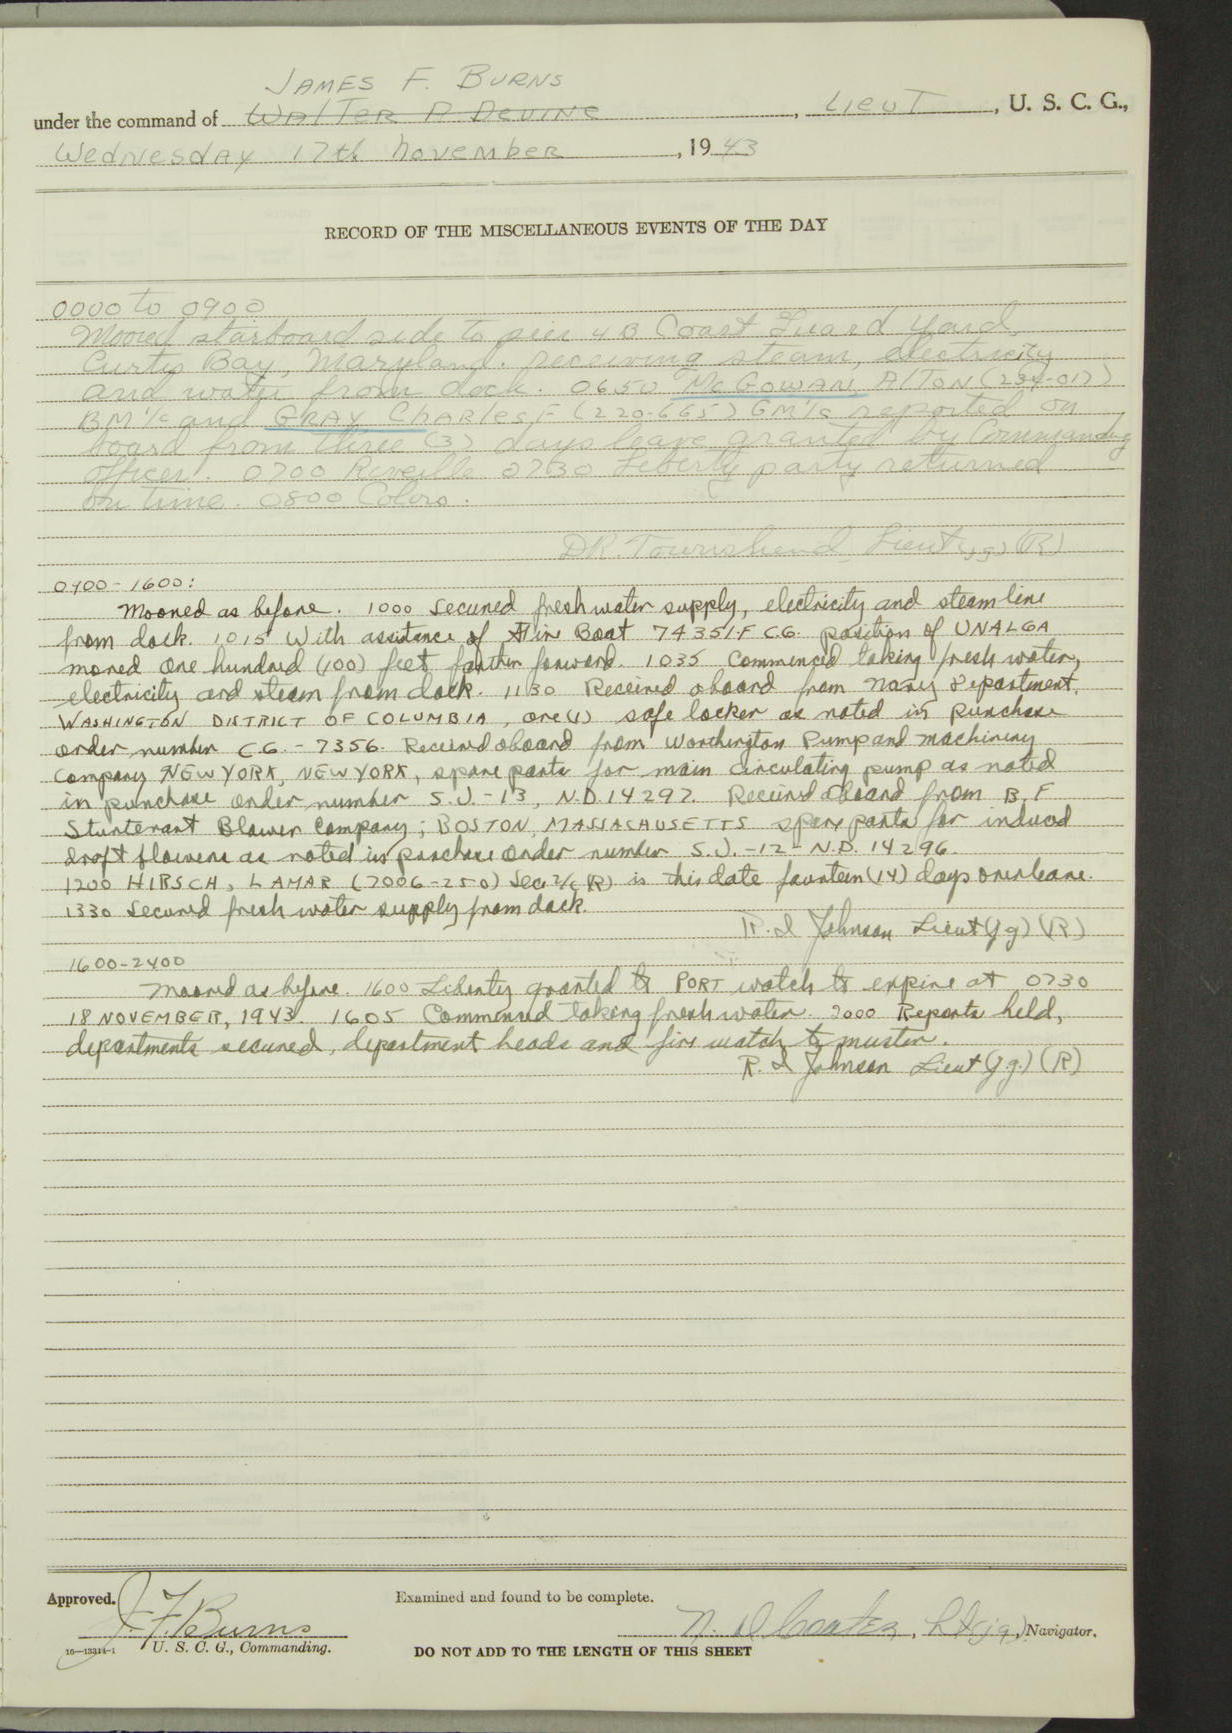 JAMES F. BURNS
under the command of WALTER P DEVINE, LIEUT, U. S. C. G.,
Wednesday 17th November, 1943
RECORD OF THE MISCELLANEOUS EVENTS OF THE DAY
0000 to 0900
Moored starboard side to pier 4B Coast Guard Yard,
Curtis Bay, Maryland. receiving steam, electricity
and water from dock. 0650 McGOWAN, Alton (234-017)
BM1/c and GRAY, Charles, F (220-665) GM1/c reported on
board from three (3) days leave granted by Commanding
Officer. 0700 Reveille 0730 Liberty party returned
on time. 0800 Colors.
DR. Townshend Lieut (jg) (R)
0900-1600:
Moored as before. 1000 Secured fresh water supply, electricity and steam line
from dock. 1015 With assistance of Fire Boat 74351-F C.G. position of UNALGA
moved one hundred (100) feet farther forward. 1035 Commenced taking fresh water,
electricity and steam from dock. 1130 Received aboard from Navy Department,
WASHINGTON DISTRICT OF COLUMBIA, one (1) safe locker as noted in purchase
order number C.G. - 7356. Received aboard from Worthington Pump and Machinery
Company, NEW YORK, NEW YORK, spare parts for main circulating pump as noted
in purchase order number S.J. - 13, N.D. 14297. Received aboard from B. F
Sturtevant Blower Company; BOSTON, MASSACHUSETTS spare parts for induced
draft flowers as noted in purchase order number S.J. - 12 - N.D. 14296.
1200 HIRSCH, LAMAR (7006-250) Sea 2/c (R) is this date fourteen (14) days overleave.
1330 Secured fresh water supply from dock.
R. I Johnson Lieut (jg) (R)
1600-2400
Moored as before. 1600 Liberty granted to PORT watch to expire at 0730
18 NOVEMBER, 1943. 1605 Commenced taking fresh water. 2000 Reports held,
departments secured, department heads and fire watch to muster.
R. I Johnson Lieut (jg.) (R)
Approved. Examined and found to be complete.
J. F. Burns N. D. Coates, Lt (jg), Navigator.
16-13314-1 U. S. C. G., Commanding. DO NOT ADD TO THE LENGTH OF THIS SHEET